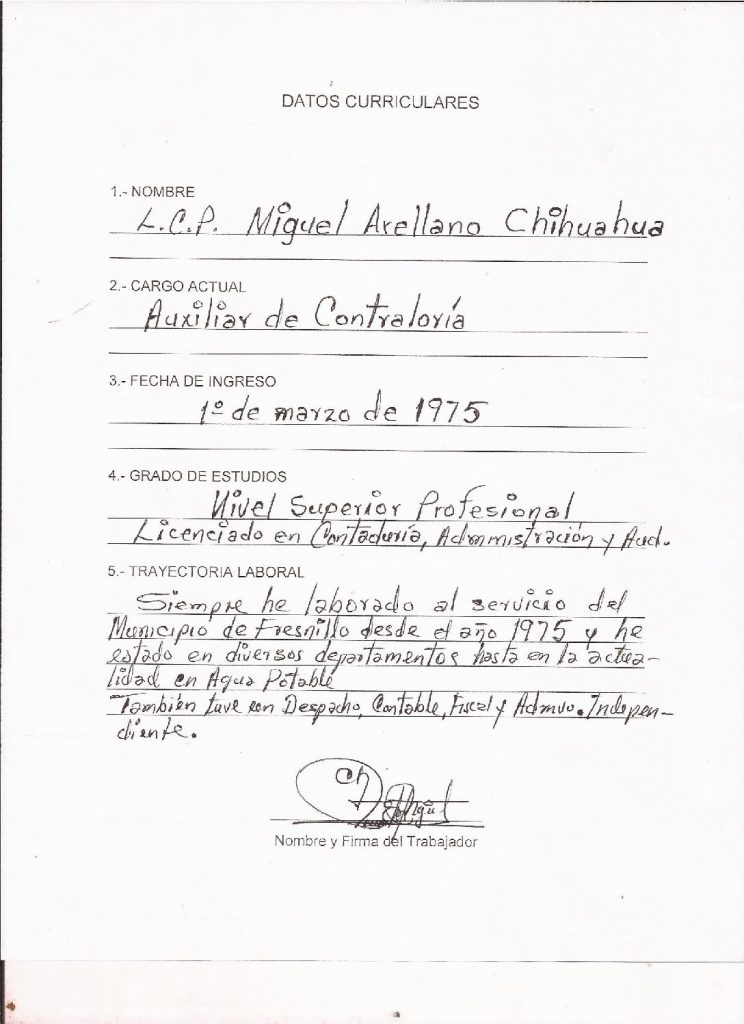 DATOS CURRICULARES
1.- NOMBRE
L.C.P. Miguel Arellano Chihuahua
2.- CARGO ACTUAL
Auxiliar de Contraloría
3.- FECHA DE INGRESO
1º de marzo de 1975
4.- GRADO DE ESTUDIOS
Nivel Superior Profesional
Licenciado en Contaduría, Administración y Aud.
5.- TRAYECTORIA LABORAL
Siempre he laborado al servicio del
Municipio de Fresnillo desde el año 1975 y he
estado en diversos departamentos hasta en la actua-
lidad en Agua Potable
También tuve con Despacho, Contable, Fiscal y Admvo. Indepen-
diente.
Nombre y Firma del Trabajador